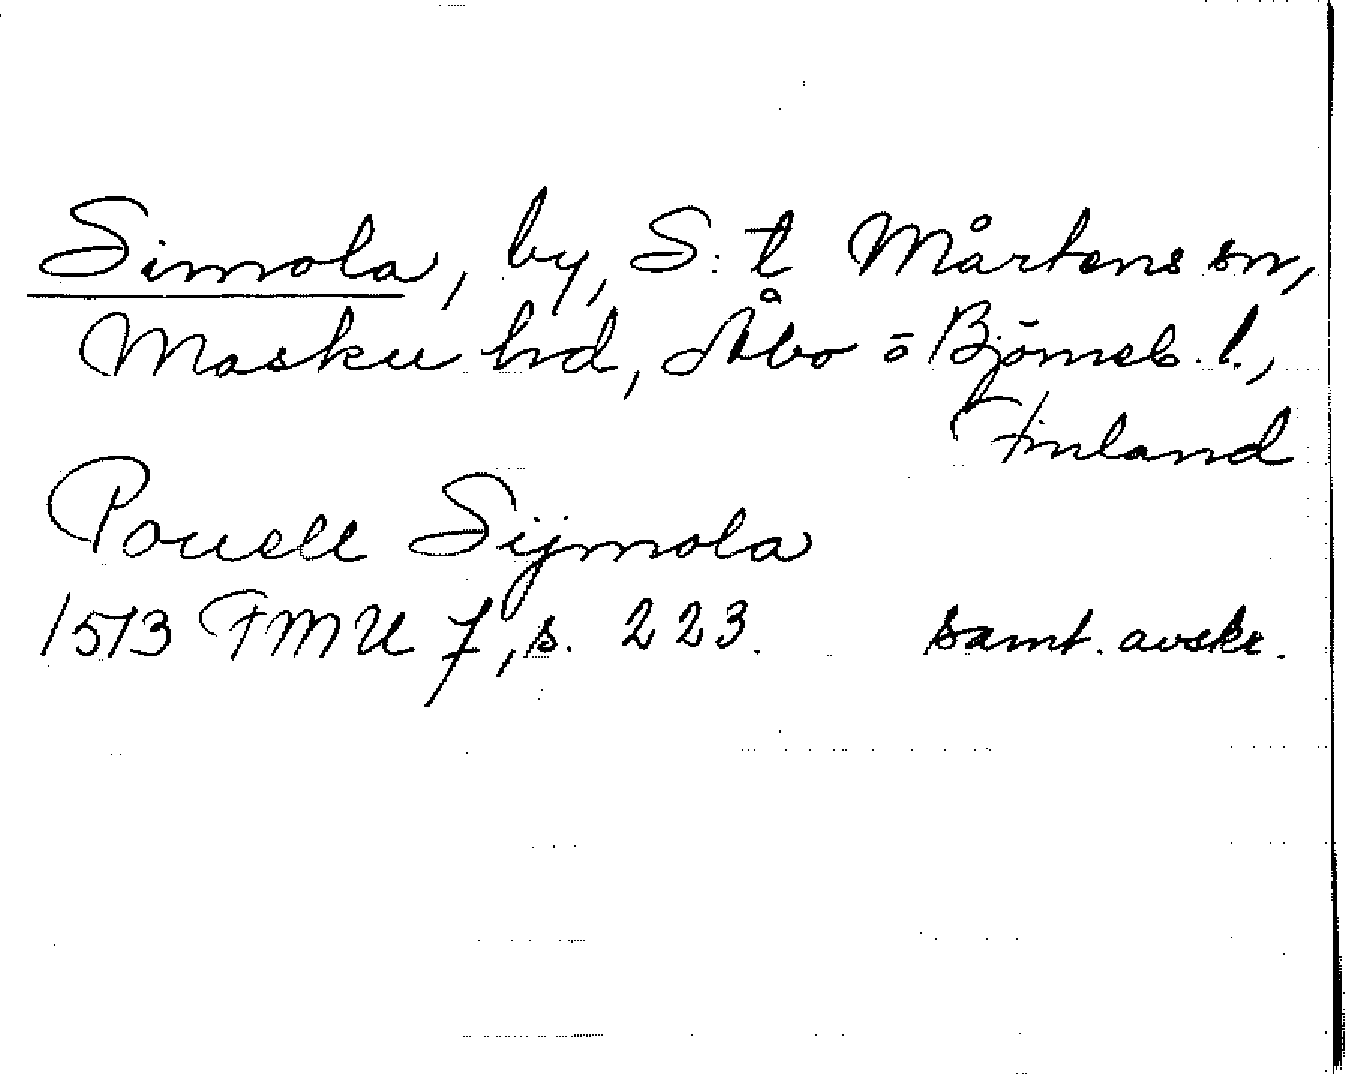 Simola, by, S:t Mårtens sn,
Masku hd, Åbo o Björneb. l.,
Finland
Pouell Sijmola
1513 FMU 7, s. 223. samt. avskr.